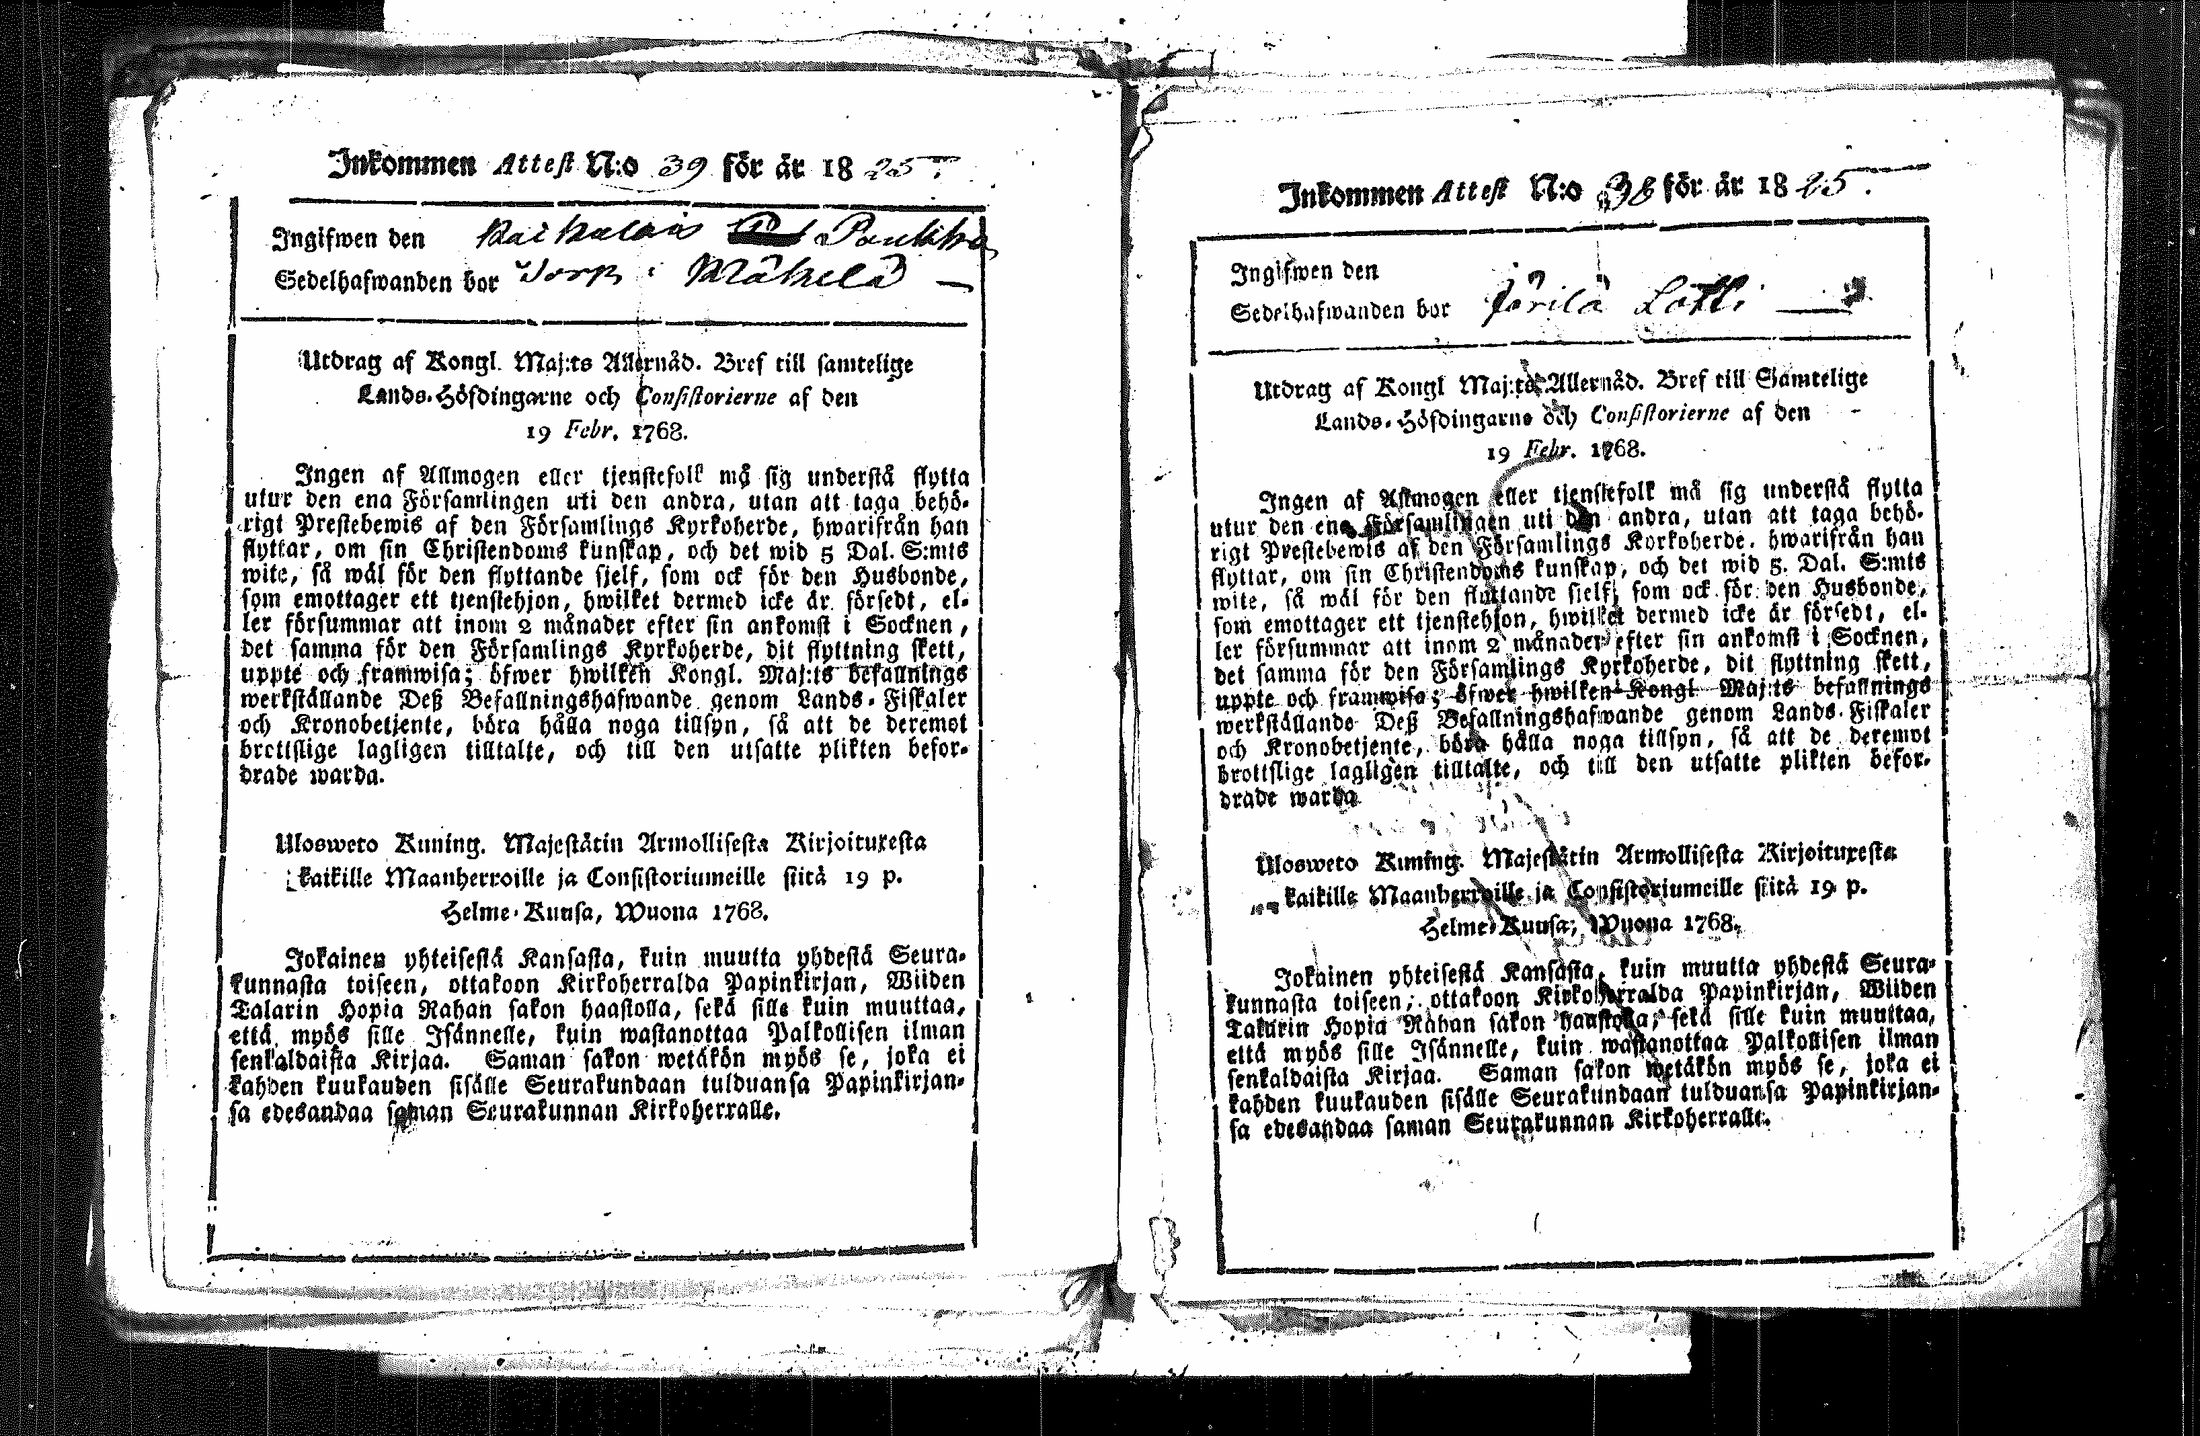 Inkommen Attest N:o 39 för år 1825.
Ingifwen den
Sedelhafwanden bor Torp i Mäkelä
Utdrag af Kongl. Maj:ts Allernåd. Bref till samtelige
Lands-Höfdingarne och Consistorierne af den
19 Febr. 1768.
Ingen af Allmogen eller tjenstefolk må sig understå flytta
utur den ena Församlingen uti den andra, utan att taga behö-
rigt Prestebewis af den Församlings Kyrkoherde, hwarifrån han
flyttar, om sin Christendoms kunskap, och det wid 5 Dal. S:mts
wite, så wäl för den flyttande sjelf, som ock för den Husbonde,
som emottager ett tjenstehjon, hwilket dermed icke är försedt, el-
ler försummar att inom 2 månader efter sin ankomst i Socknen,
det samma för den Församlings Kyrkoherde, dit flyttning skett,
uppte och framwisa; öfwer hwilken Kongl. Maj:ts befallnings
werkställande Deß Befallningshafwande genom Lands-Fiskaler
och Kronobetjente, böra hålla noga tillsyn, så att de deremot
brottslige lagligen tilltalte, och till den utsatte plikten befor-
drade warda.
Ulosweto Kuning. Majestätin Armollisesta Kirjoituxesta
kaikille Maanherroille ja Consistoriumeille siitä 19 p.
Helme-Kuusa, Wuona 1768.
Jokainen yhteisestä Kansasta, kuin muutta yhdestä Seura-
kunnasta toiseen, ottakoon Kirkoherralda Papinkirjan, Wiiden
Talarin Hopia Rahan sakon haastolla, sekä sille kuin muuttaa,
että myös sille Isännelle, kuin wastanottaa Palkollisen ilman
senkaldaista Kirjaa. Saman sakon wetäkön myös se, joka ei
kahden kuukauden sisälle Seurakundaan tulduansa Papinkirjan-
sa edesandaa saman Seurakunnan Kirkoherralle.
Inkommen Attest N:o 38 för år 1825.
Ingifwen den
Sedelhafwanden bor Jörilä Lotti
Utdrag af Kongl Maj:ts Allernåd. Bref till Samtelige
Lands-Höfdingarne och Consistorierne af den
19 Febr. 1768.
Ingen af Allmogen eller tjenstefolk må sig understå flytta
utur den ena Församlingen uti den andra, utan att taga behö-
rigt Prestebewis af den Församlings Kyrkoherde, hwarifrån han
flyttar, om sin Christendoms kunskap, och det wid 5. Dal. S:mts
wite, så wäl för den flyttande sjelf, som ock för den Husbonde,
som emottager ett tjenstehjon, hwilket dermed icke är försedt, el-
ler försummar att inom 2 månader efter sin ankomst i Socknen,
det samma för den Församlings Kyrkoherde, dit flyttning skett,
uppte och framwisa; öfwer hwilken Kongl Maj:ts befallnings
werkställande Deß Befallningshafwande genom Lands-Fiskaler
och Kronobetjente, böra hålla noga tillsyn, så att de deremot
brottslige lagligen tilltalte, och till den utsatte plikten befor-
drade warda
Ulosweto Kuning. Majestätin Armollisesta Kirjoituxesta
kaikille Maanherroille ja Consistoriumeille siitä 19 p.
Helme-Kuusa, Wuona 1768.
Jokainen yhteisestä Kansasta, kuin muutta yhdestä Seura-
kunnasta toiseen, ottakoon Kirkoherralda Papinkirjan, Wiiden
Talarin Hopia Rahan sakon haastolla, sekä sille kuin muuttaa,
että myös sille Isännelle, kuin wastanottaa Palkollisen ilman
senkaldaista Kirjaa. Saman sakon wetäkön myös se, joka ei
kahden kuukauden sisälle Seurakundaan tulduansa Papinkirjan-
sa edesandaa saman Seurakunnan Kirkoherralle.